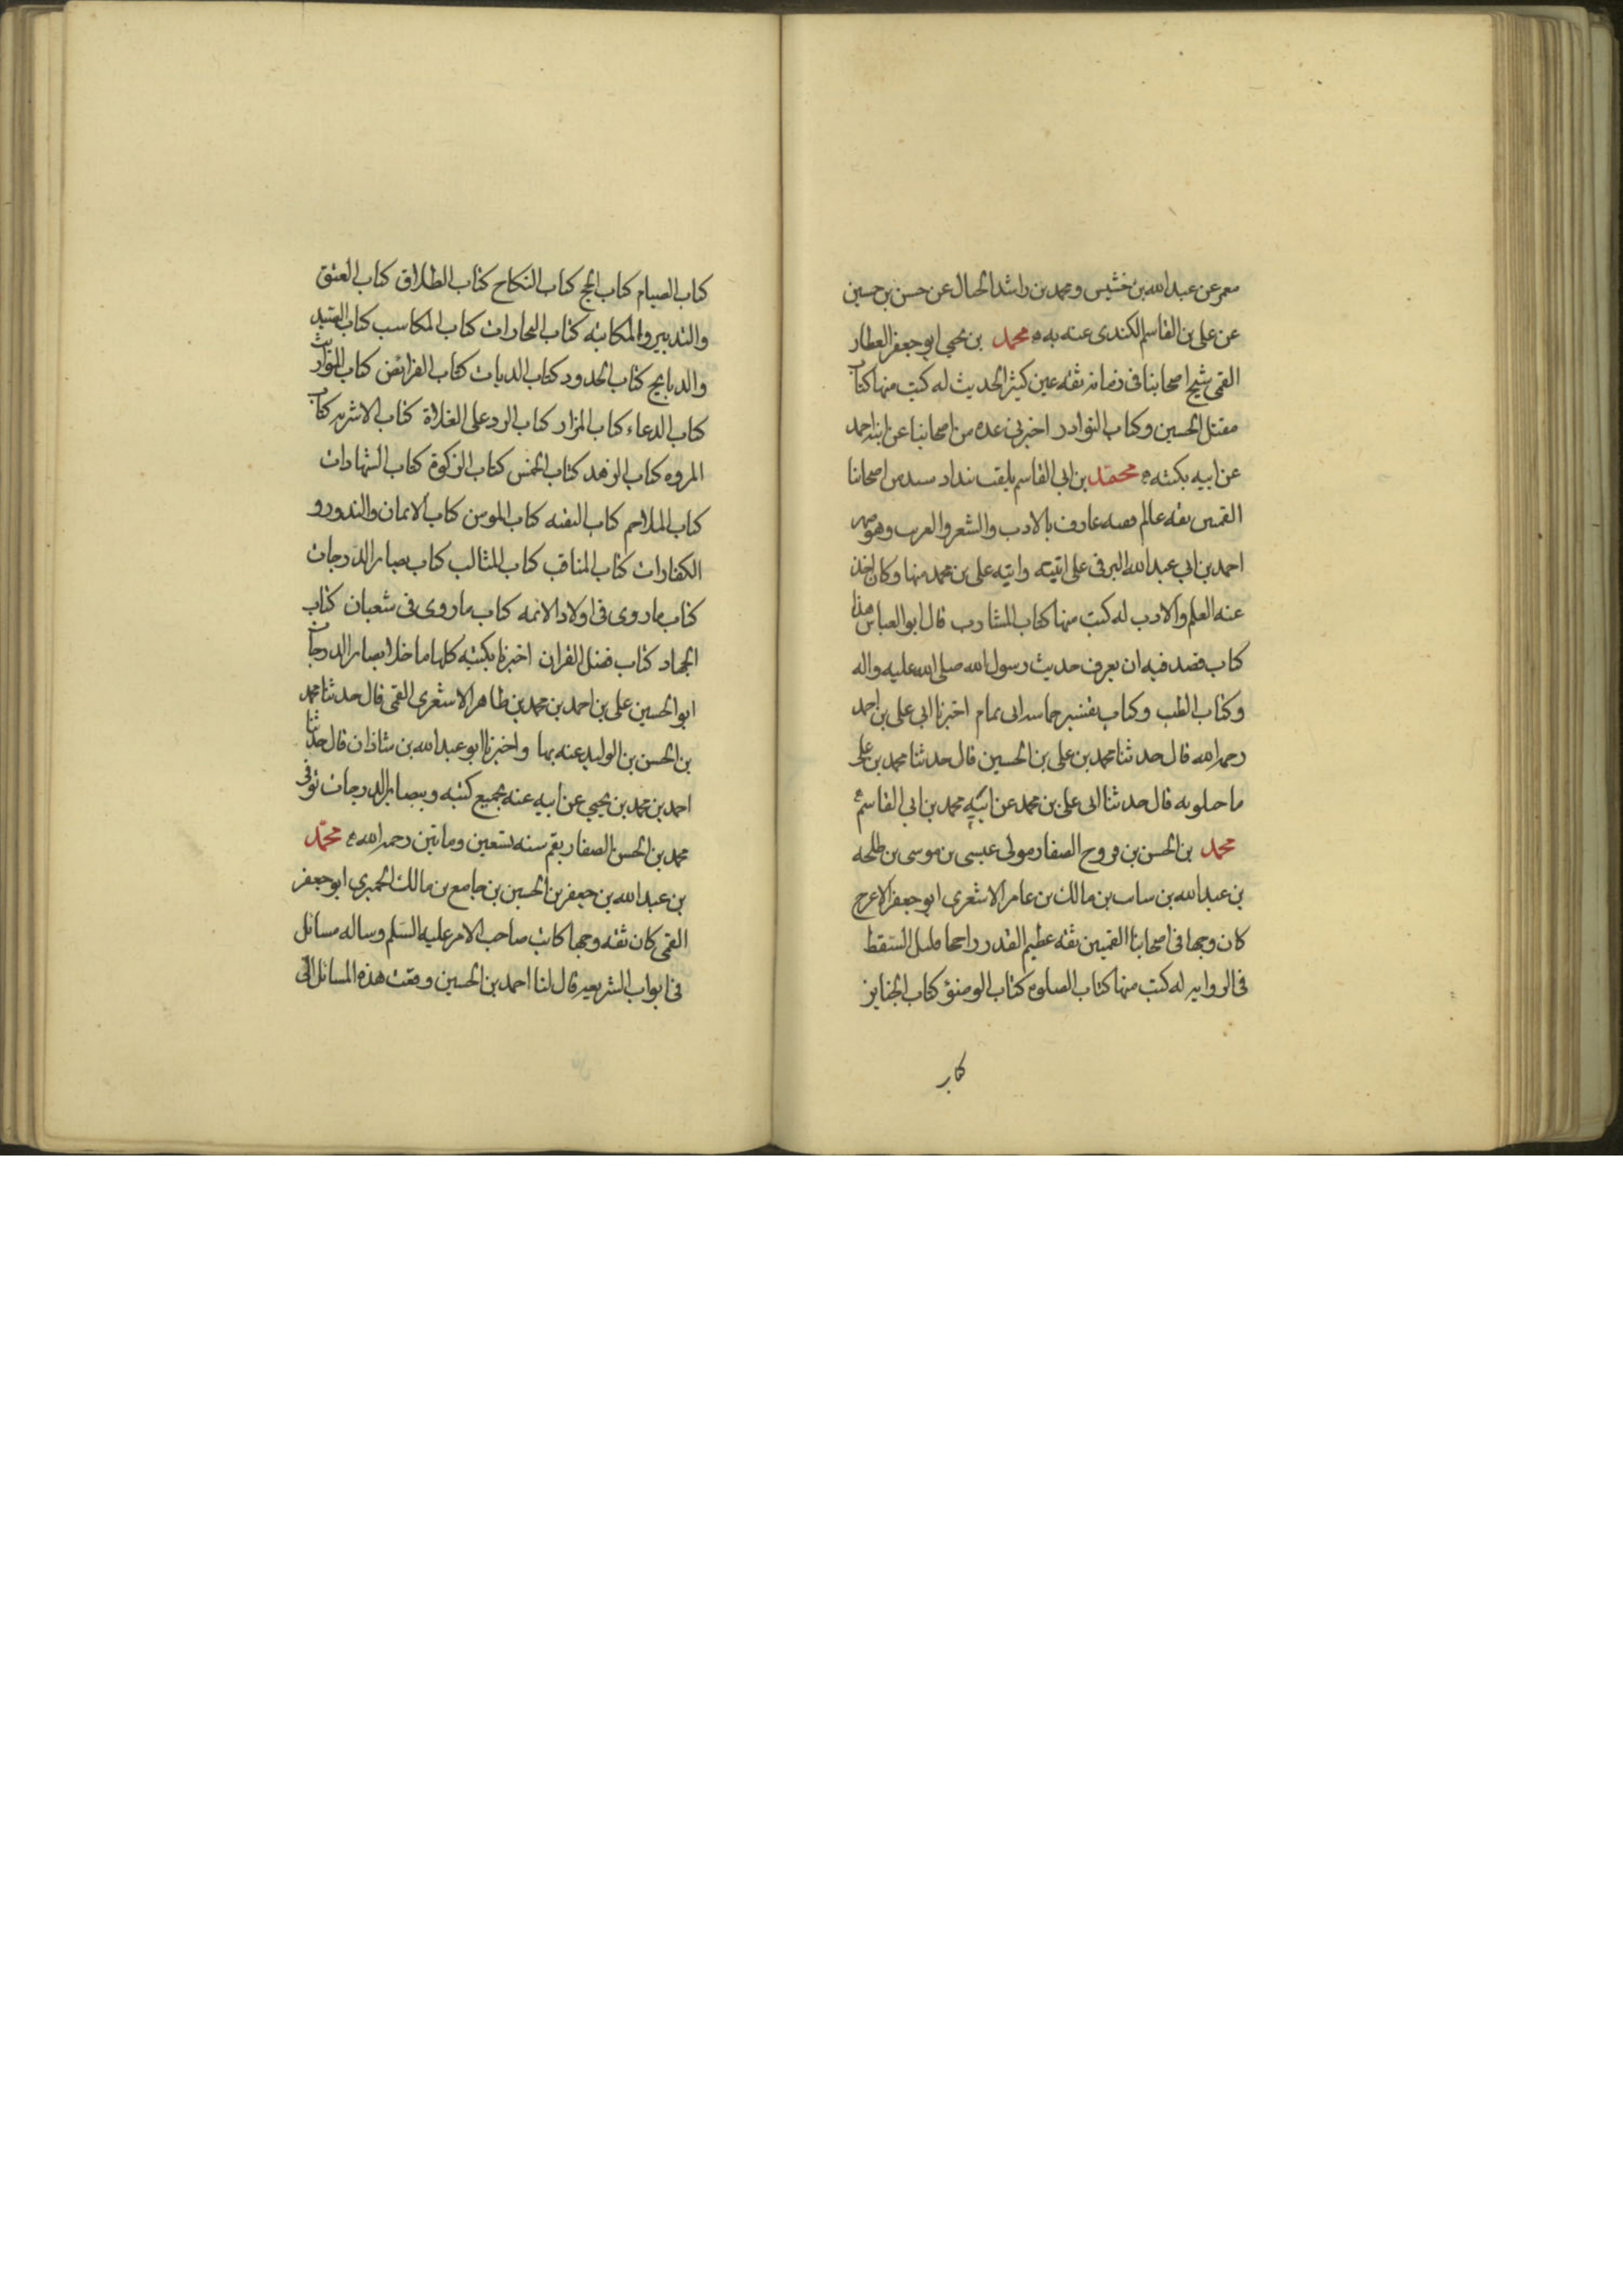 معمر عن عبد الله بن خشيس ومحمد بن راشد الحبال عن حسن بن حسين
عن على بن القاسم الكندى عنه به ه محمد بن يحيى ابو جعفر العطار
القمى شيخ اصحابنا فى زمانه ثقه عين كثير الحديث له كتب منها كتاب
مقتل الحسين وكتاب النوادر اخبرنى عده من اصحابنا عن ابنه احمد
عن ابيه بكتبه ه محمد بن ابى القاسم يلقب بندار سيد من اصحابنا
القميين ثقه عالم فقيه عارف بالادب والشعر والعرب وهو صهر
احمد بن ابى عبد الله البرقى على ابنته وابنه على بن محمد منها وكان اخذ
عنه العلم والادب له كتب منها كتاب المشارب قال ابو العباس هذا
كتاب قصد فيه ان يعرف حديث رسول الله صلى الله عليه واله
وكتاب الطب وكتاب تفسير حماسه ابى تمام اخبرنا ابى على بن احمد
رحمه الله قال حدثنا محمد بن على بن الحسين قال حدثنا محمد بن على
ماجيلويه قال حدثنا ابى على بن محمد عن ابيه محمد بن ابى القاسم ه
محمد بن الحسن بن فروخ الصفار مولى عيسى بن موسى بن طلحه
بن عبد الله بن سايب بن مالك بن عامر الاشعرى ابو جعفر الاعرج
كان وجها فى اصحابنا القميين ثقه عظيم القدر راجحا قليل السقط
فى الروايه له كتب منها كتاب الصلوه كتاب الوضوء كتاب الجنايز
كتاب
كتاب الصيام كتاب الحج كتاب النكاح كتاب الطلاق كتاب العتق
والتدبير والمكاتبه كتاب التجارات كتاب المكاسب كتاب الصيد
والذبايح كتاب الحدود كتاب الديات كتاب الفرائض كتاب المواريث
كتاب الدعاء كتاب المزار كتاب الرد على الغلاة كتاب الاشربه كتاب
المروه كتاب الزهد كتاب الخمس كتاب الزكوة كتاب الشهادات
كتاب الملاحم كتاب التقيه كتاب المومن كتاب الايمان والنذور و
الكفارات كتاب المناقب كتاب المثالب كتاب بصاير الدرجات
كتاب ما روى فى اولاد الائمه كتاب ما روى فى شعبان كتاب
الجهاد كتاب فضل القران اخبرنا بكتبه كلها ما خلا بصاير الدرجات
ابو الحسين على بن احمد بن محمد بن طاهر الاشعرى القمى قال حدثنا محمد
بن الحسن بن الوليد عنه بها واخبرنا ابو عبد الله بن شاذان قال حدثنا
احمد بن محمد بن يحيى عن ابيه عنه بجميع كتبه وببصاير الدرجات توفى
محمد بن الحسن الصفار بقم سنه تسعين ومائتين رحمه الله ه محمد
بن عبد الله بن جعفر بن الحسين بن جامع بن مالك الحميرى ابو جعفر
القمى كان ثقه وجها كاتب صاحب الامر عليه السلم وساله مسائل
فى ابواب الشريعه قال لنا احمد بن الحسين وقعت هذه المسائل الى